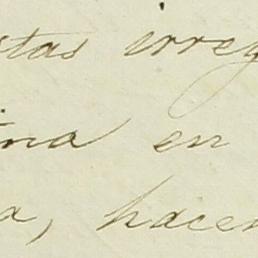 stas irreg
ina en
a, hacen